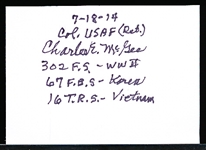 7-18-14
Col. USAF (Ret.)
Charles E. McGee
302 F.S. - WW II
67 F.B.S - Korea
16 T.R.S. - Vietnam